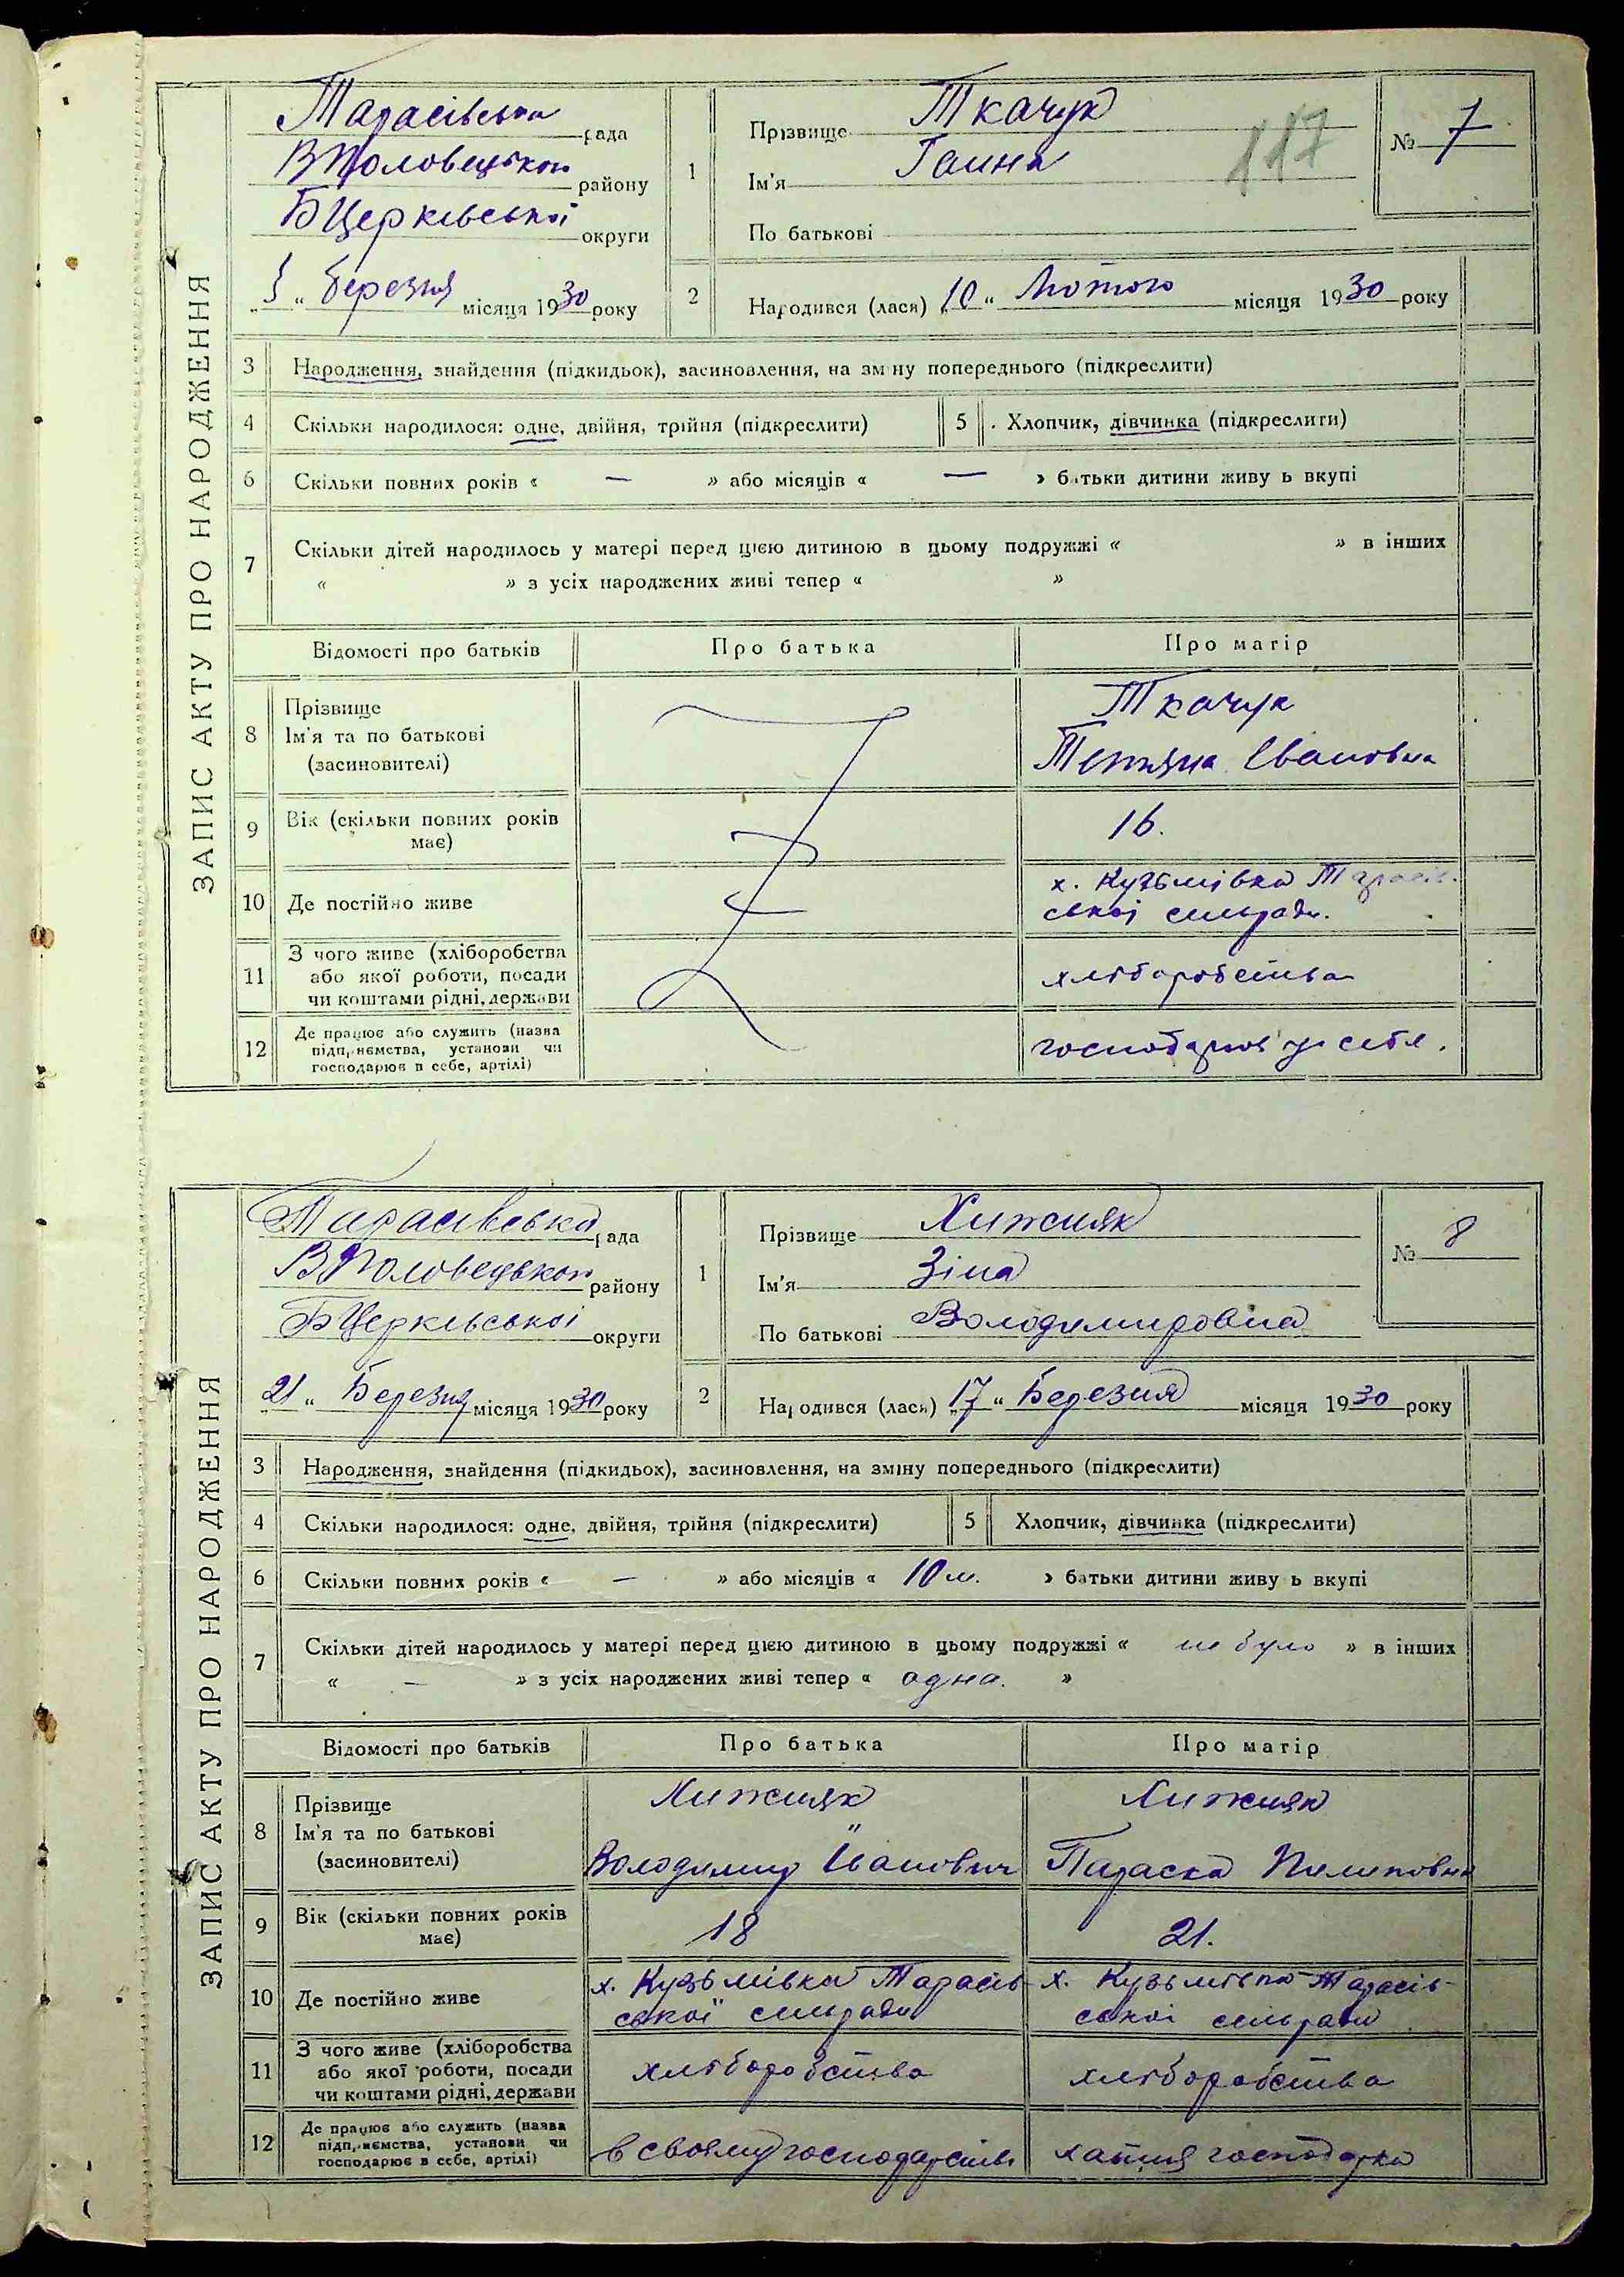 ЗАПИС АКТУ ПРО НАРОДЖЕННЯ
Тарасівська рада
ВПоловецького району
БЦерківської округи
„5“ березня місяця 1930 року
1 Прізвище Ткачук
Ім'я Ганна
По батькові
117
№ 7
2 Народився (лася) „10“ Лютого місяця 1930 року
3 Народження, знайдення (підкидьок), засиновлення, на зміну попереднього (підкреслити)
4 Скільки народилося: одне, двійня, трійня (підкреслити) 5 Хлопчик, дівчинка (підкреслити)
6 Скільки повних років « — » або місяців « — » батьки дитини живуть вкупі
7 Скільки дітей народилось у матері перед цією дитиною в цьому подружжі « » в інших
« » з усіх народжених живі тепер « »
Відомості про батьків Про батька Про матір
8 Прізвище
Ім'я та по батькові
(засиновителі)
Ткачук
Тетяна Івановна
9 Вік (скільки повних років має) 16.
10 Де постійно живе х. Кузьмівка Тарасів-
ської сільради.
11 З чого живе (хліборобства
або якої роботи, посади
чи коштами рідні, держави
хліборобства
12 Де працює або служить (назва
підприємства, установи чи
господарює в себе, артілі)
господарює у себе.
ЗАПИС АКТУ ПРО НАРОДЖЕННЯ
Тарасівська рада
ВПоловецького району
БЦерківської округи
„21“ Березня місяця 1930 року
1 Прізвище Хижняк
Ім'я Зіна
По батькові Володимировна
№ 8
2 Народився (лася) „17“ Березня місяця 1930 року
3 Народження, знайдення (підкидьок), засиновлення, на зміну попереднього (підкреслити)
4 Скільки народилося: одне, двійня, трійня (підкреслити) 5 Хлопчик, дівчинка (підкреслити)
6 Скільки повних років « — » або місяців « 10 м. » батьки дитини живуть вкупі
7 Скільки дітей народилось у матері перед цією дитиною в цьому подружжі « не було » в інших
« — » з усіх народжених живі тепер « одна. »
Відомості про батьків Про батька Про матір
8 Прізвище
Ім'я та по батькові
(засиновителі)
Хижняк
Володимир Іванович
Хижняк
Параска Пилиповна
9 Вік (скільки повних років має) 18 21.
10 Де постійно живе
х. Кузьмівка Тарасів-
ської сільради
х. Кузьмівка Тарасів-
ської сільради
11 З чого живе (хліборобства
або якої роботи, посади
чи коштами рідні, держави
хліборобства
хліборобства
12 Де працює або служить (назва
підприємства, установи чи
господарює в себе, артілі)
в своєму господарстві
хатня господарка